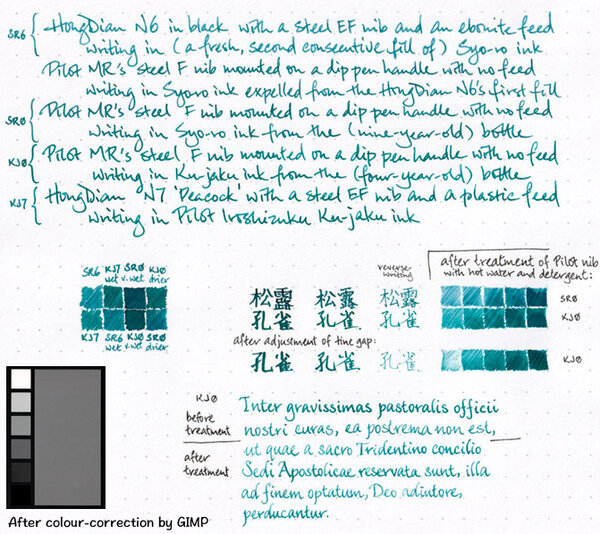 SR6 { HongDian N6 in black with a steel EF nib and an ebonite feed
writing in (a fresh, second consecutive fill of) Syo-ro ink
Pilot MR's steel F nib mounted on a dip pen handle with no feed
writing in Syo-ro ink expelled from the HongDian N6's first fill
SRØ { Pilot MR's steel F nib mounted on a dip pen handle with no feed
writing in Syo-ro ink from the (nine-year-old) bottle
KJØ { Pilot MR's steel F nib mounted on a dip pen handle with no feed
writing in Ku-jaku ink from the (four-year-old) bottle
KJ7 { HongDian N7 'Peacock' with a steel EF nib and a plastic feed
writing in Pilot Iroshizuku Ku-jaku ink
SR6 KJ7 SRØ KJØ
wet v. wet drier
KJ7 SR6 KJØ SRØ
wet v. wet drier
reverse writing
松露 松露 松露
孔雀 孔雀 孔雀
after adjustment of tine gap:
孔雀 孔雀 孔雀
after treatment of Pilot nib
with hot water and detergent:
SRØ
KJØ
KJØ
KJØ
before
treatment
after
treatment
Inter gravissimas pastoralis officii
nostri curas, ea postrema non est,
ut quae a sacro Tridentino concilio
Sedi Apostolicae reservata sunt, illa
ad finem optatum, Deo adiutore,
perducantur.
After colour-correction by GIMP